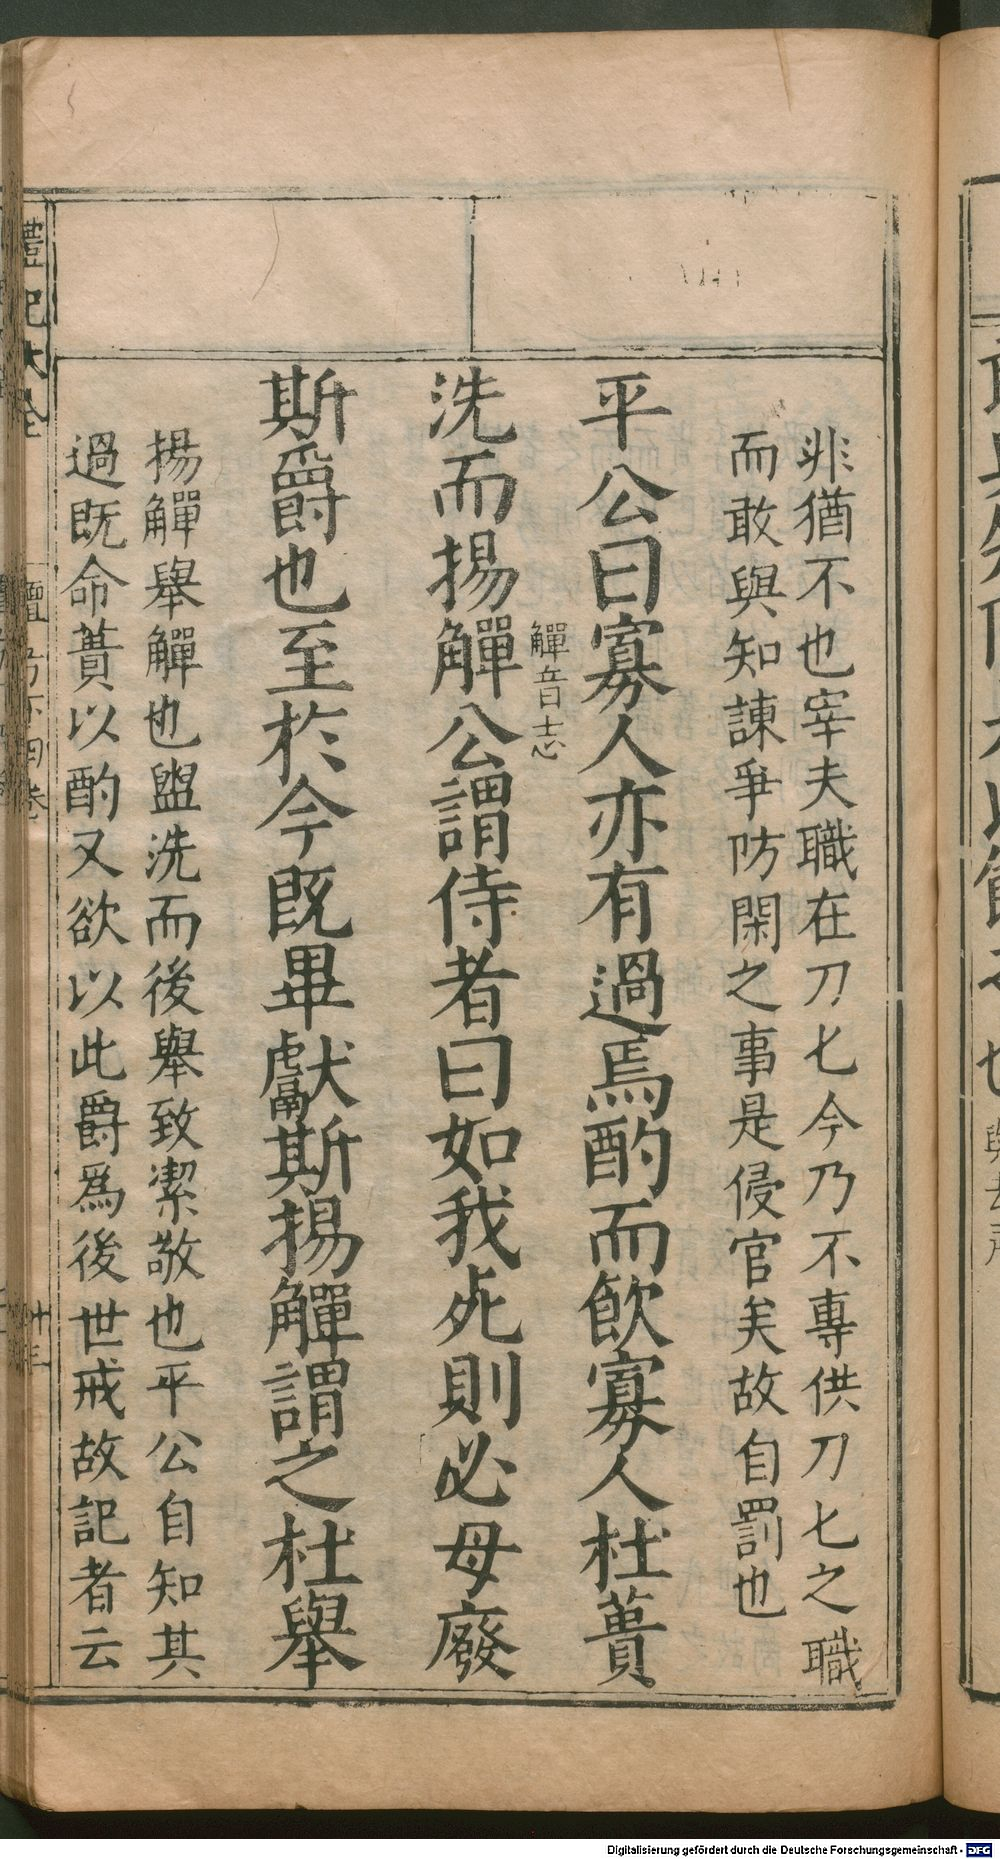 非猶不也宰夫職在刀匕今乃不專供刀匕之職
而敢與知諫爭防閑之事是侵官矣故自罰也
平公曰寡人亦有過焉酌而飲寡人杜蕢
洗而揚觶公謂侍者曰如我死則必毋廢
觶音志
斯爵也至於今既畢獻斯揚觶謂之杜舉
揚觶舉觶也盥洗而後舉致潔敬也平公自知其
過既命蕢以酌又欲以此爵爲後世戒故記者云
禮記大全 檀弓下四卷 卅三
Digitalisierung gefördert durch die Deutsche Forschungsgemeinschaft - DFG